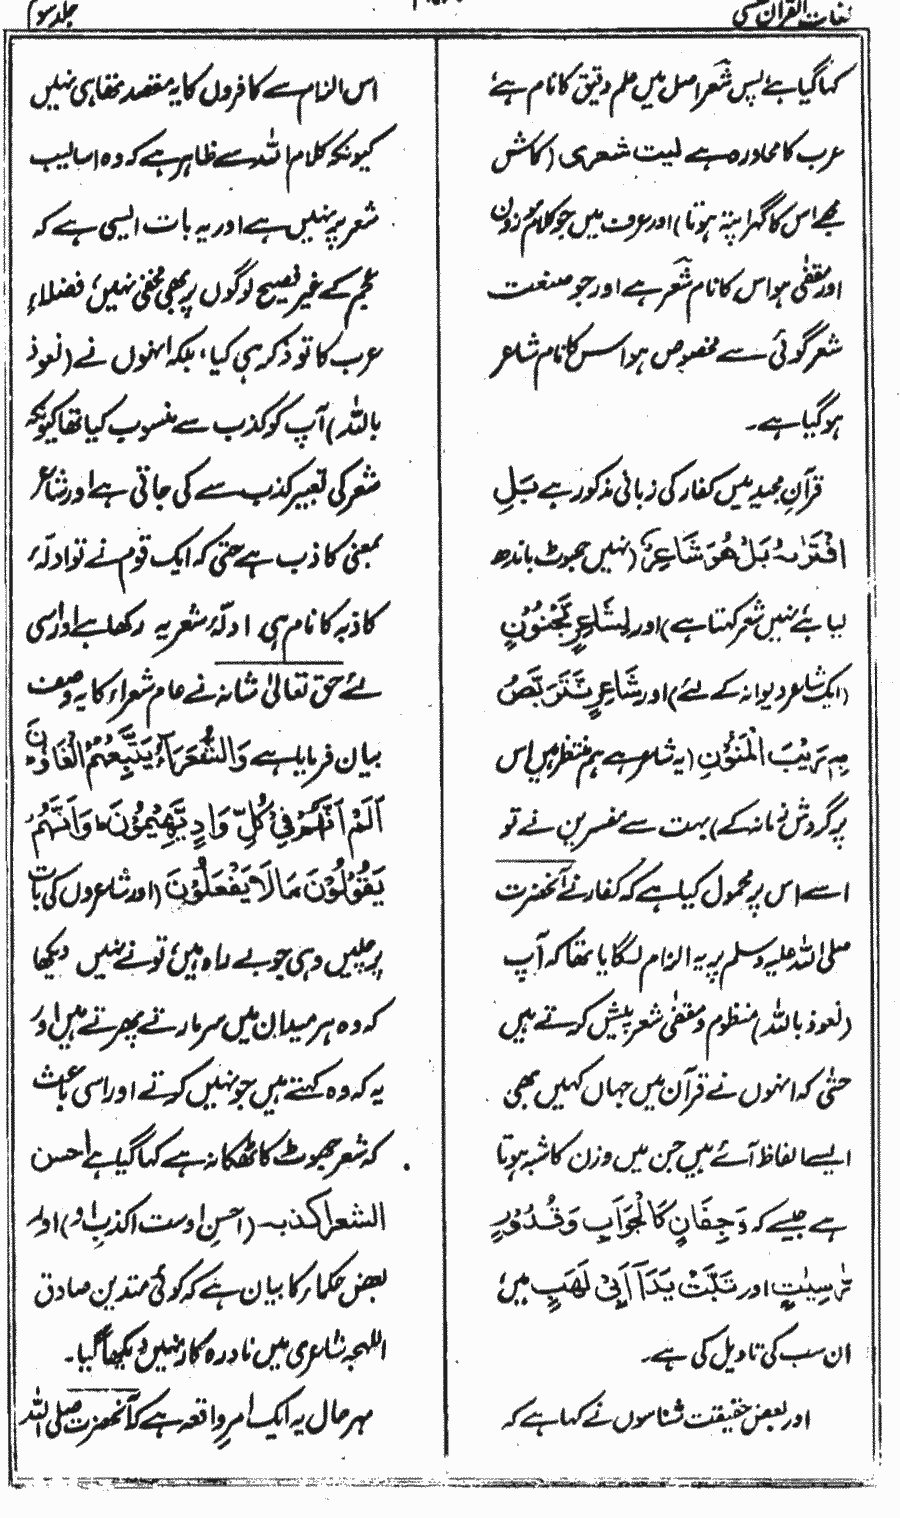 لغات القرآن
جلد سوم
کہا گیا ہے، پس شعر اصل میں علم دقیق کا نام ہے،
عرب کا محاورہ ہے لیت شعری (کاش
مجھے اس کا گہرا پتہ ہوتا) اور عرف میں جو کلام موزون
اور مقفٰی ہو اس کا نام شعر ہے اور جو صنعت
شعر گوئی سے مخصوص ہو اس کا نام شاعر
ہو گیا ہے۔
قرآنِ مجید میں کفار کی زبانی مذکور ہے بَلِ
افْتَرٰىهُ بَلْ هُوَ شَاعِرٌ (نہیں جھوٹ باندھ
لیا ہے نہیں شعر کہتا ہے) اور لِشَاعِرٍ مَّجْنُوْنٍ
(ایک شاعر دیوانہ کے لئے) اور شَاعِرٌ نَّتَرَبَّصُ
بِهٖ رَيْبَ الْمَنُوْنِ (یہ شاعر ہے ہم منتظر ہیں اس
پر گردش زمانہ کے) بہت سے مفسرین نے تو
اسے اس پر محمول کیا ہے کہ کفار نے آنحضرت
صلی اللہ علیہ وسلم پر یہ الزام لگایا تھا کہ آپ
(نعوذ باللہ) منظوم و مقفٰی شعر پیش کرتے ہیں
حتٰی کہ انہوں نے قرآن میں جہاں کہیں بھی
ایسے الفاظ آئے ہیں جن میں وزن کا شبہ ہوتا
ہے جیسے کہ وَجِفَانٍ كَالْجَوَابِ وَقُدُوْرٍ
رّٰسِيٰتٍ اور تَبَّتْ يَدَآ اَبِيْ لَهَبٍ میں،
ان سب کی تاویل کی ہے۔
اور بعض حقیقت شناسوں نے کہا ہے کہ
اس الزام سے کافروں کا یہ مقصد تھا ہی نہیں
کیونکہ کلام اللہ سے ظاہر ہے کہ وہ اسالیب
شعر پر نہیں ہے اور یہ بات ایسی ہے کہ
عجم کے غیر فصیح لوگوں پر بھی مخفی نہیں، فضلاءِ
عرب کا تو ذکر ہی کیا، بلکہ انہوں نے (نعوذ
باللہ) آپ کو کذب سے منسوب کیا تھا کیونکہ
شعر کی تعبیر کذب سے کی جاتی ہے اور شاعر
بمعنی کاذب ہے حتٰی کہ ایک قوم نے تو ادلّہ
کاذبہ کا نام ہی ادلّہ شعریہ رکھا ہے اور اسی
لئے حق تعالیٰ شانہ نے عام شعراء کا یہ وصف
بیان فرمایا ہے وَالشُّعَرَآءُ يَتَّبِعُهُمُ الْغَاوٗنَ
اَلَمْ تَرَ اَنَّهُمْ فِيْ كُلِّ وَادٍ يَّهِيْمُوْنَ وَاَنَّهُمْ
يَقُوْلُوْنَ مَا لَا يَفْعَلُوْنَ (اور شاعروں کی بات
پر چلیں وہی جو بے راہ ہیں، تو نے نہیں دیکھا
کہ وہ ہر میدان میں سر مارتے پھرتے ہیں اور
یہ کہ وہ کہتے ہیں جو نہیں کرتے اور اسی باعث
کہ شعر جھوٹ کا ٹھکانہ ہے کہا گیا ہے احسن
الشعر اکذبہ۔ (احسنِ اوست اکذبِ او) اور
بعض حکماء کا بیان ہے کہ کوئی متدین صادق
اللہجہ شاعری میں نادرہ کار نہیں دیکھا گیا۔
بہر حال یہ ایک امرِ واقعہ ہے کہ آنحضرت صلی اللہ